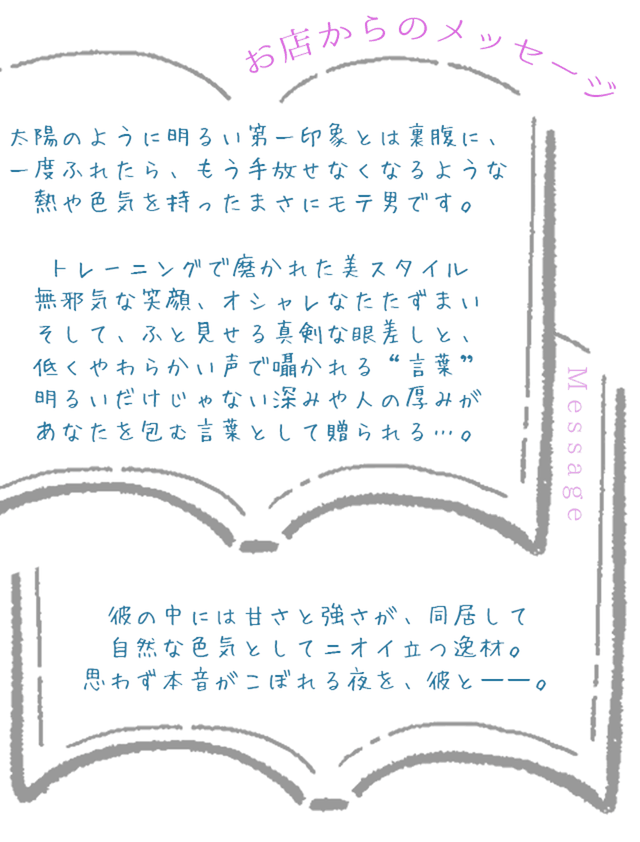 お店からのメッセージ
太陽のように明るい第一印象とは裏腹に、
一度ふれたら、もう手放せなくなるような
熱や色気を持ったまさにモテ男です。
トレーニングで磨かれた美スタイル
無邪気な笑顔、オシャレなたたずまい
そして、ふと見せる真剣な眼差しと、
低くやわらかい声で囁かれる“言葉”
明るいだけじゃない深みや人の厚みが
あなたを包む言葉として贈られる…。
Message
彼の中には甘さと強さが、同居して
自然な色気としてニオイ立つ逸材。
思わず本音がこぼれる夜を、彼と――。